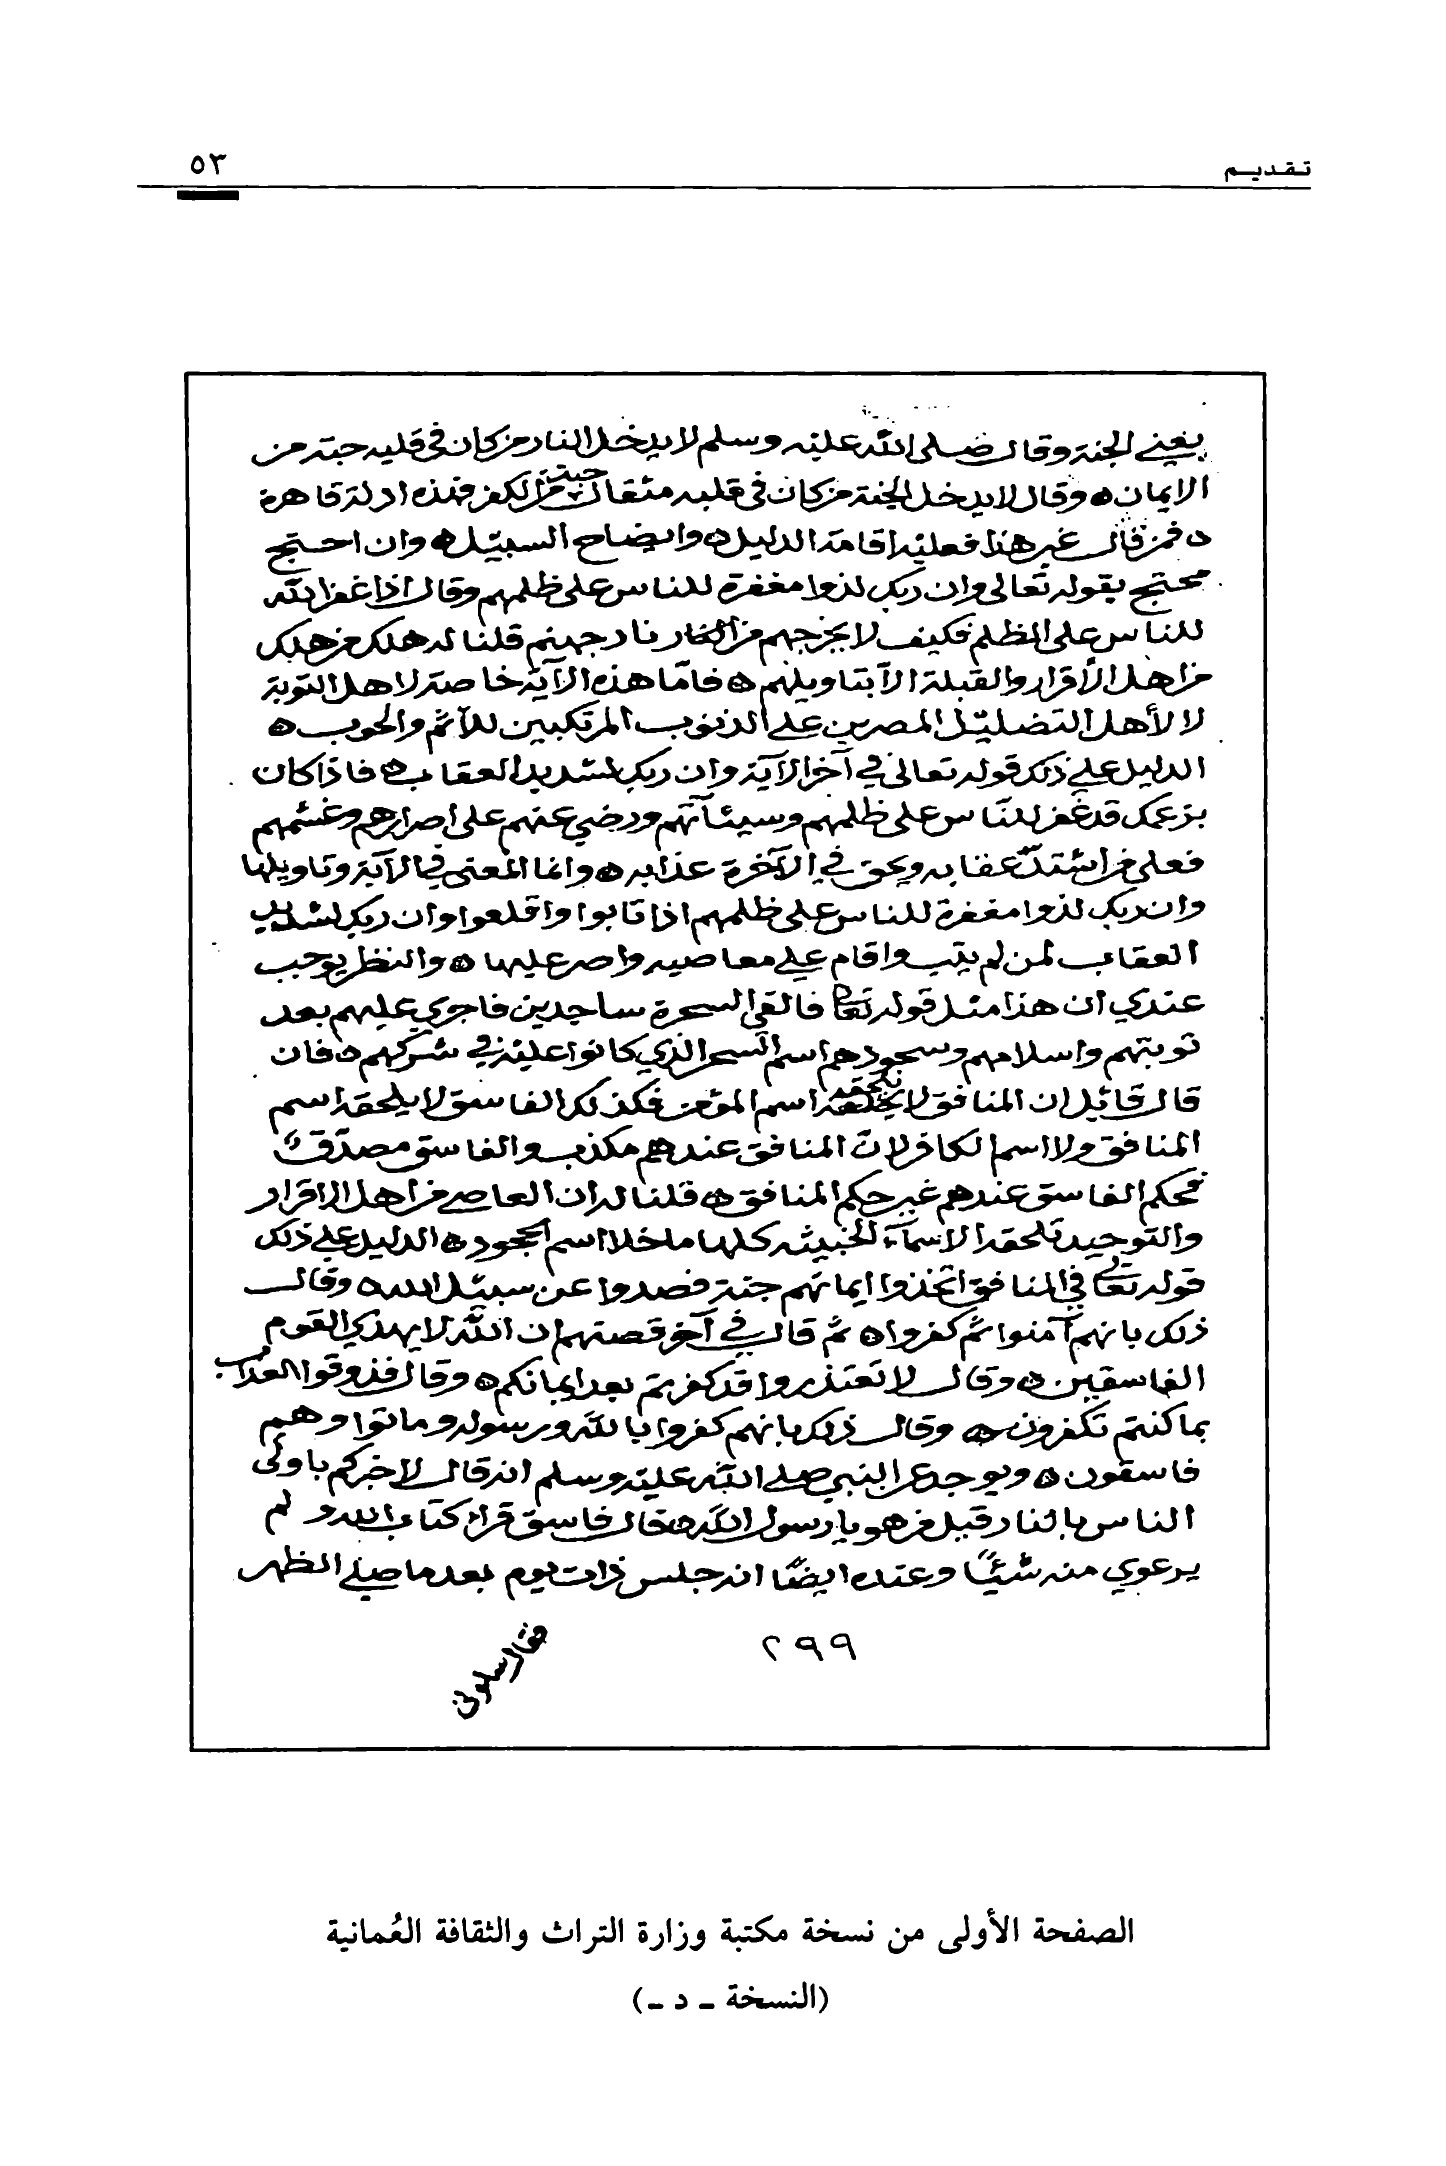 تقديم
٥٣
يعني الجنة وقال صلى الله عليه وسلم لا يدخل النار من كان في قلبه حبة من
الايمان ه وقال لا يدخل الجنة من كان في قلبه مثقال حبة من الكفر فهذه ادلة قاهرة
ه فمن قال غير هذا فعليه اقامة الدليل ه وايضاح السبيل ه وان احتج
محتج بقوله تعالى وان ربك لذوا مغفرة للناس على ظلمهم وقال اذا غفر الله
للناس على الظلم فكيف لا يخرجهم من النار نار جهنم قلنا له هلك من هلك
من اهل الأقرار والقبلة الا بتاويلهم ه فامّا هذه الآية خاصة لاهل التوبة
لا لأهل التضليل المصرين على الذنوب المرتكبين للآثم والحوب ه
الدليل على ذلك قوله تعالى في آخر الآية وان ربك لشديد العقاب ه فاذا كان
بزعمك قد غفر للنّاس على ظلمهم وسيئآتهم ورضي عنهم على اصرارهم وغشمهم
فعلى من اشتدّ عقابه ويحق في الآخرة عذابه ه وانما المعنى في الآية وتاويلها
وان ربك لذوا مغفرة للناس على ظلمهم اذا تابوا واقلعوا وان ربك لشديد
العقاب لمن لم يتب واقام على معاصيه واصر عليها ه والنظر يوجب
عندي ان هذا مثل قوله تعالى فالقي السحرة ساجدين فاجري عليهم بعد
توبتهم واسلامهم وسجودهم اسم السحر الذي كانوا عليه في شركهم ه فان
قال قائل ان المنافق لا يلحقه اسم المؤمن فكذلك الفاسق لا يلحقه اسم
المنافق ولا اسم الكافر لانّ المنافق عندهم مكذب والفاسق مصدّق
فحكم الفاسق عندهم غير حكم المنافق ه قلنا له ان العاصي من اهل الاقرار
والتوحيد تلحقه الاسمآء الخبيثه كلها ما خلا اسم الجحود ه الدليل على ذلك
قوله تعالى في المنافق اتخذوا ايمانهم جنة فصدوا عن سبيل الله ه وقال
ذلك بانهم آمنوا ثم كفروا ه ثم قال في آخر قصتهم ان الله لا يهدي القوم
الفاسقين ه وقال لا تعتذروا قد كفرتم بعد ايمانكم ه وقال فذوقوا العذاب
بما كنتم تكفرون ه وقال ذلك بانهم كفروا بالله ورسوله وماتوا وهم
فاسقون ه ويوجد عن النبي صلى الله عليه وسلم انه قال لاخبركم باولى
الناس بالنار قيل من هو يا رسول الله ه قال فاسق قرأ كتاب الله ولم
يرعوي منه شيئًا وعنده ايضًا انه جلس ذات يوم بعد ما صلى الظهر
فقال سلوني
٢٩٩
الصفحة الأولى من نسخة مكتبة وزارة التراث والثقافة العُمانية
(النسخة ـ د ـ)